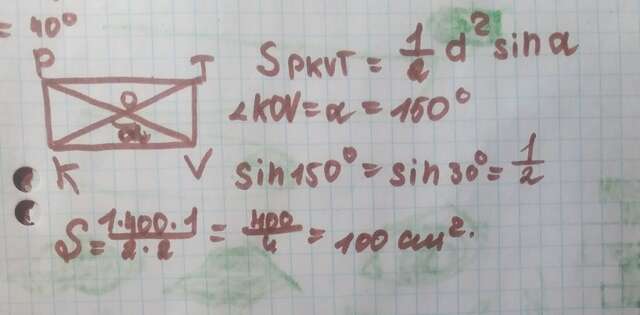 = 40°
P T
O
α
K V
S PKVT = 1/2 d² sin α
∠KOV = α = 150°
sin 150° = sin 30° = 1/2
S = 1·400·1/2·2 = 400/4 = 100 см².